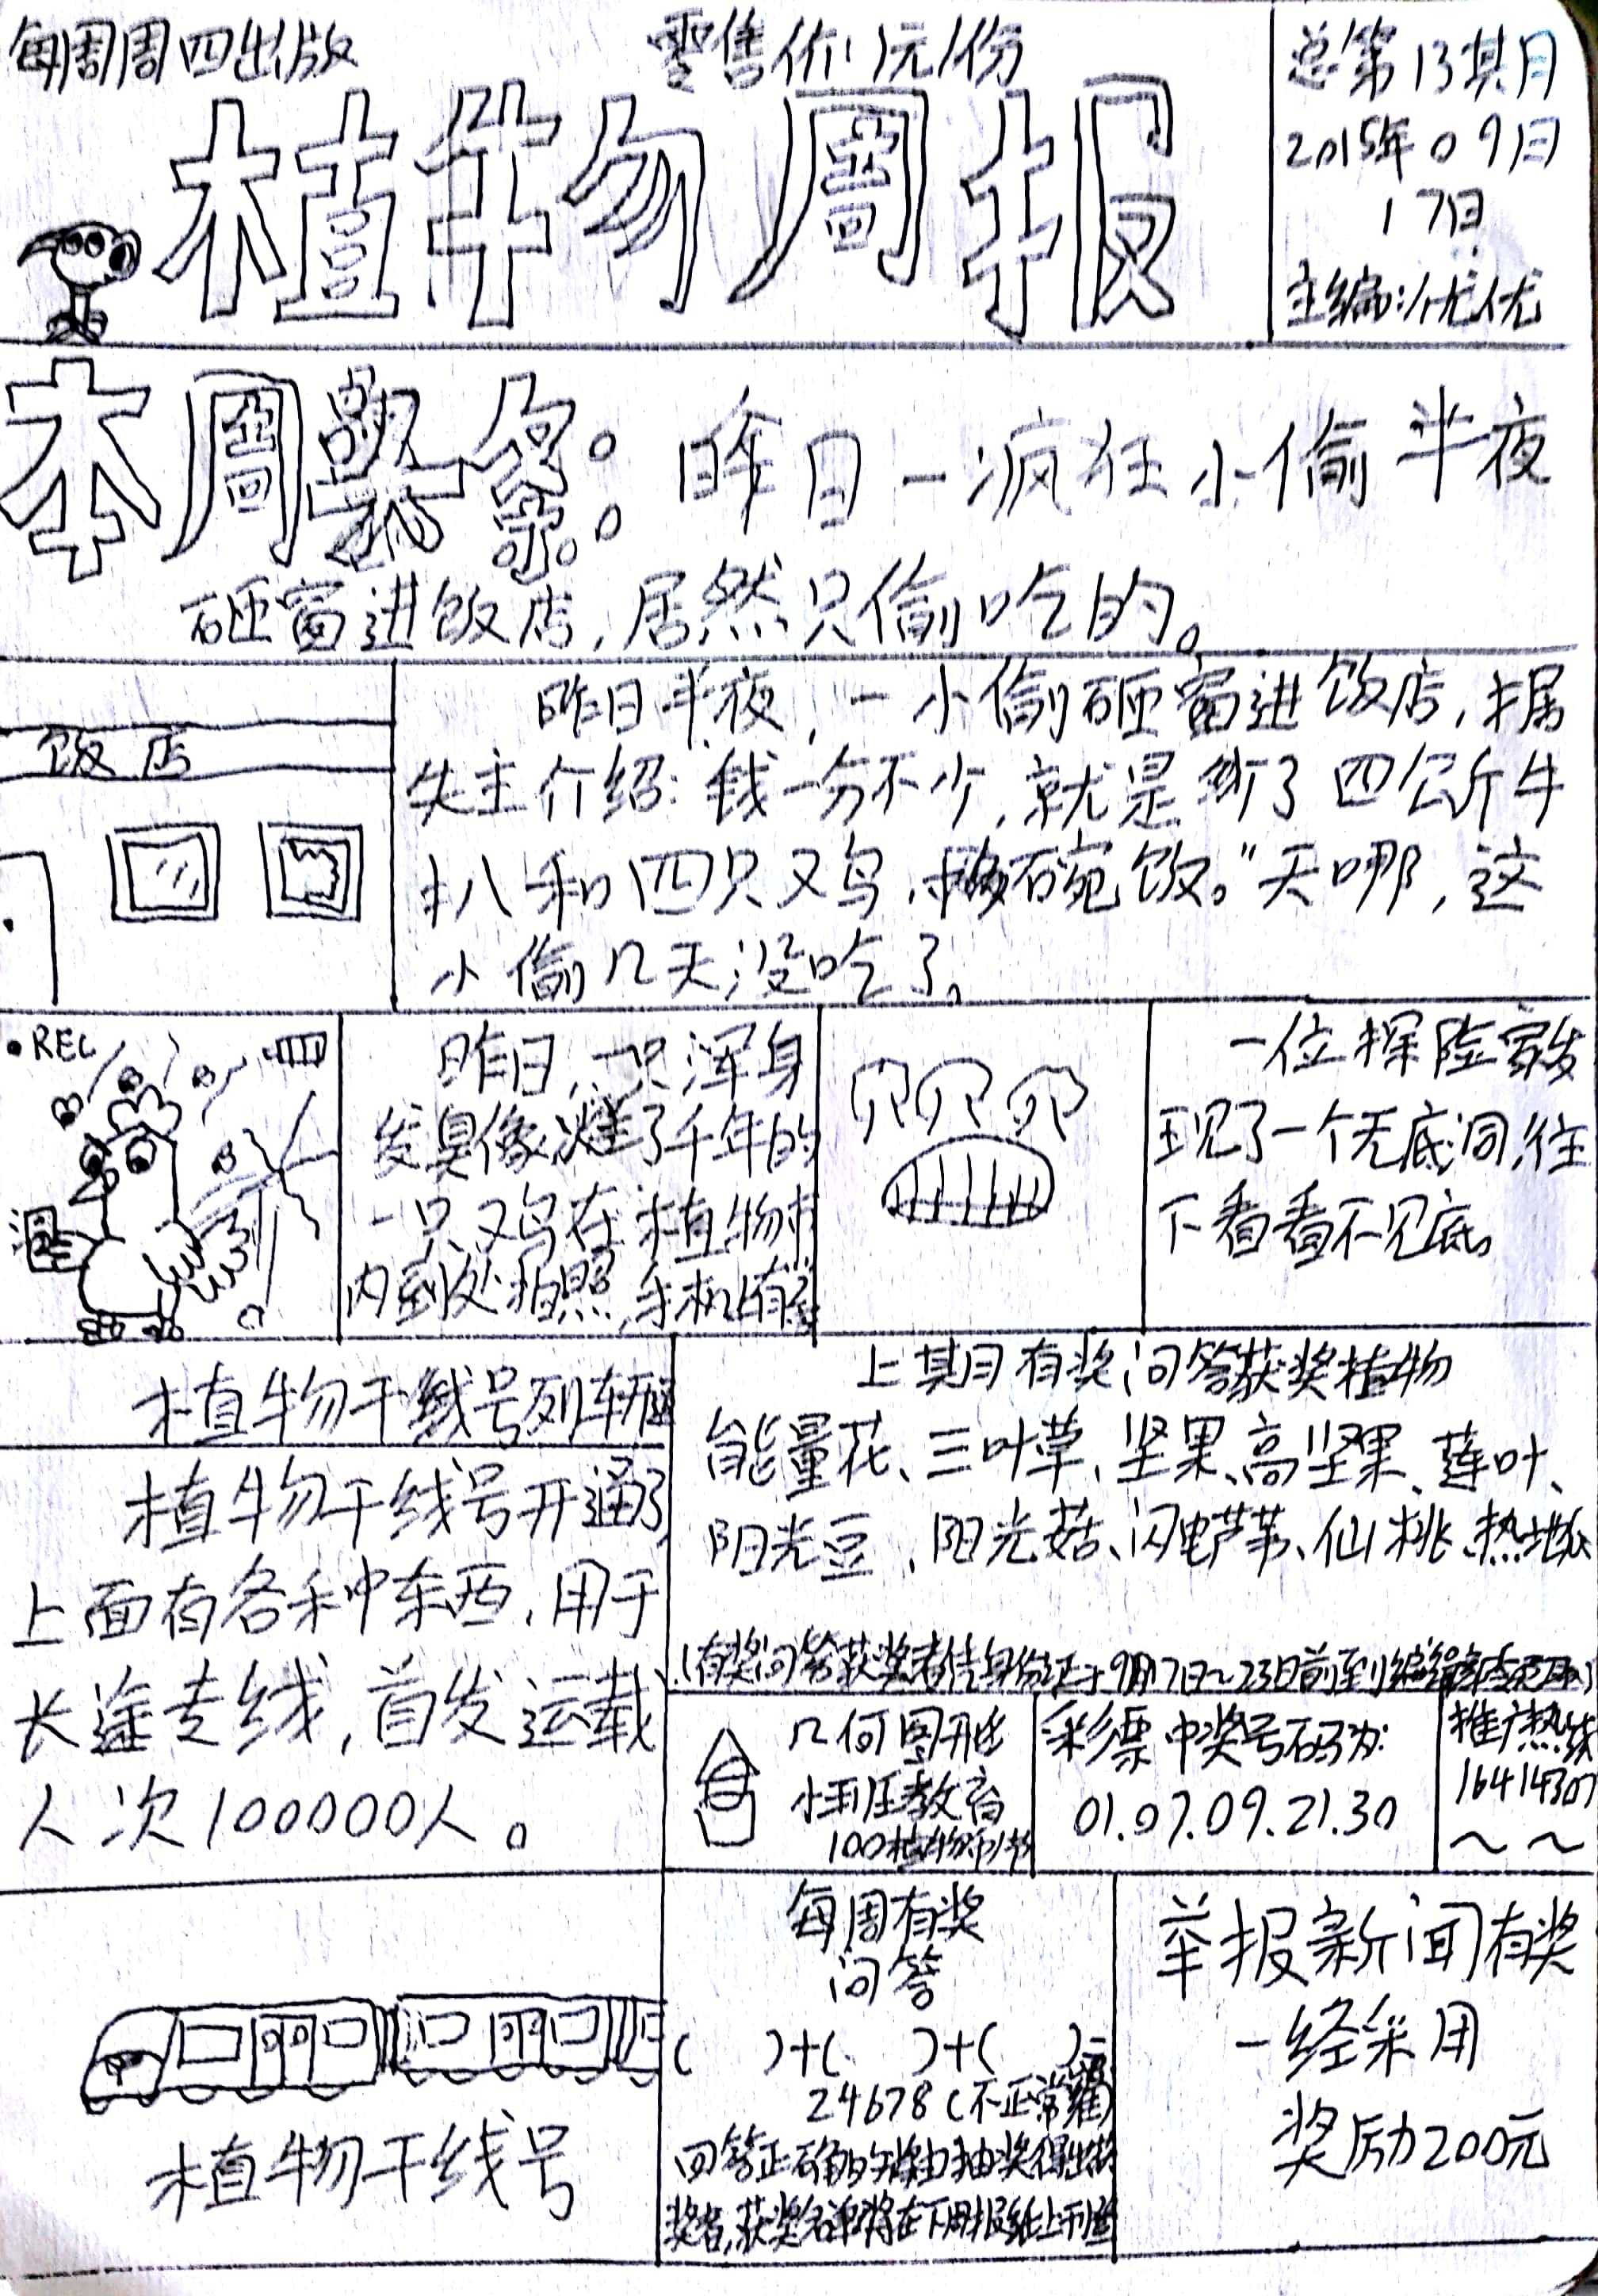 每周周四出版
零售价:1元/份
植物周报
总第13期
2015年09月
17日
主编:优优
本周头条:昨日一疯狂小偷半夜
砸窗进饭店,居然只偷吃的。
饭店
昨日半夜,一小偷砸窗进饭店,据
失主介绍:钱一分不少,就是少了四公斤牛
扒和四只鸡,碗饭。"天哪,这
小偷几天没吃了。
REC
昨日,一只浑身
发臭像了千年的
一只鸡在植物村
内到处拍照,手机
一位探险家发
现了一个无底洞,往
下看看不见底。
植物干线号列车
植物干线号开通了,
上面有各种东西,用于
长途专线,首发运载
人次100000人。
植物干线号
上期有奖问答获奖植物
能量花、三叶草、坚果、高坚果、莲叶、
阳光豆、阳光菇、闪电芦苇、仙桃、热
(有奖问答获奖者凭身份证于9月17日~23日前到编辑部
几何图形
小班教育
100植物币/节
彩票中奖号码为:
01.07.09.21.30
推广热线
16414307
~~
每周有奖
问答
( )+( )+( )=
24678(不正常
回答正确的抽奖得出获
奖者,获奖名单将在下周报纸上刊登
举报新闻有奖
一经采用
奖励200元